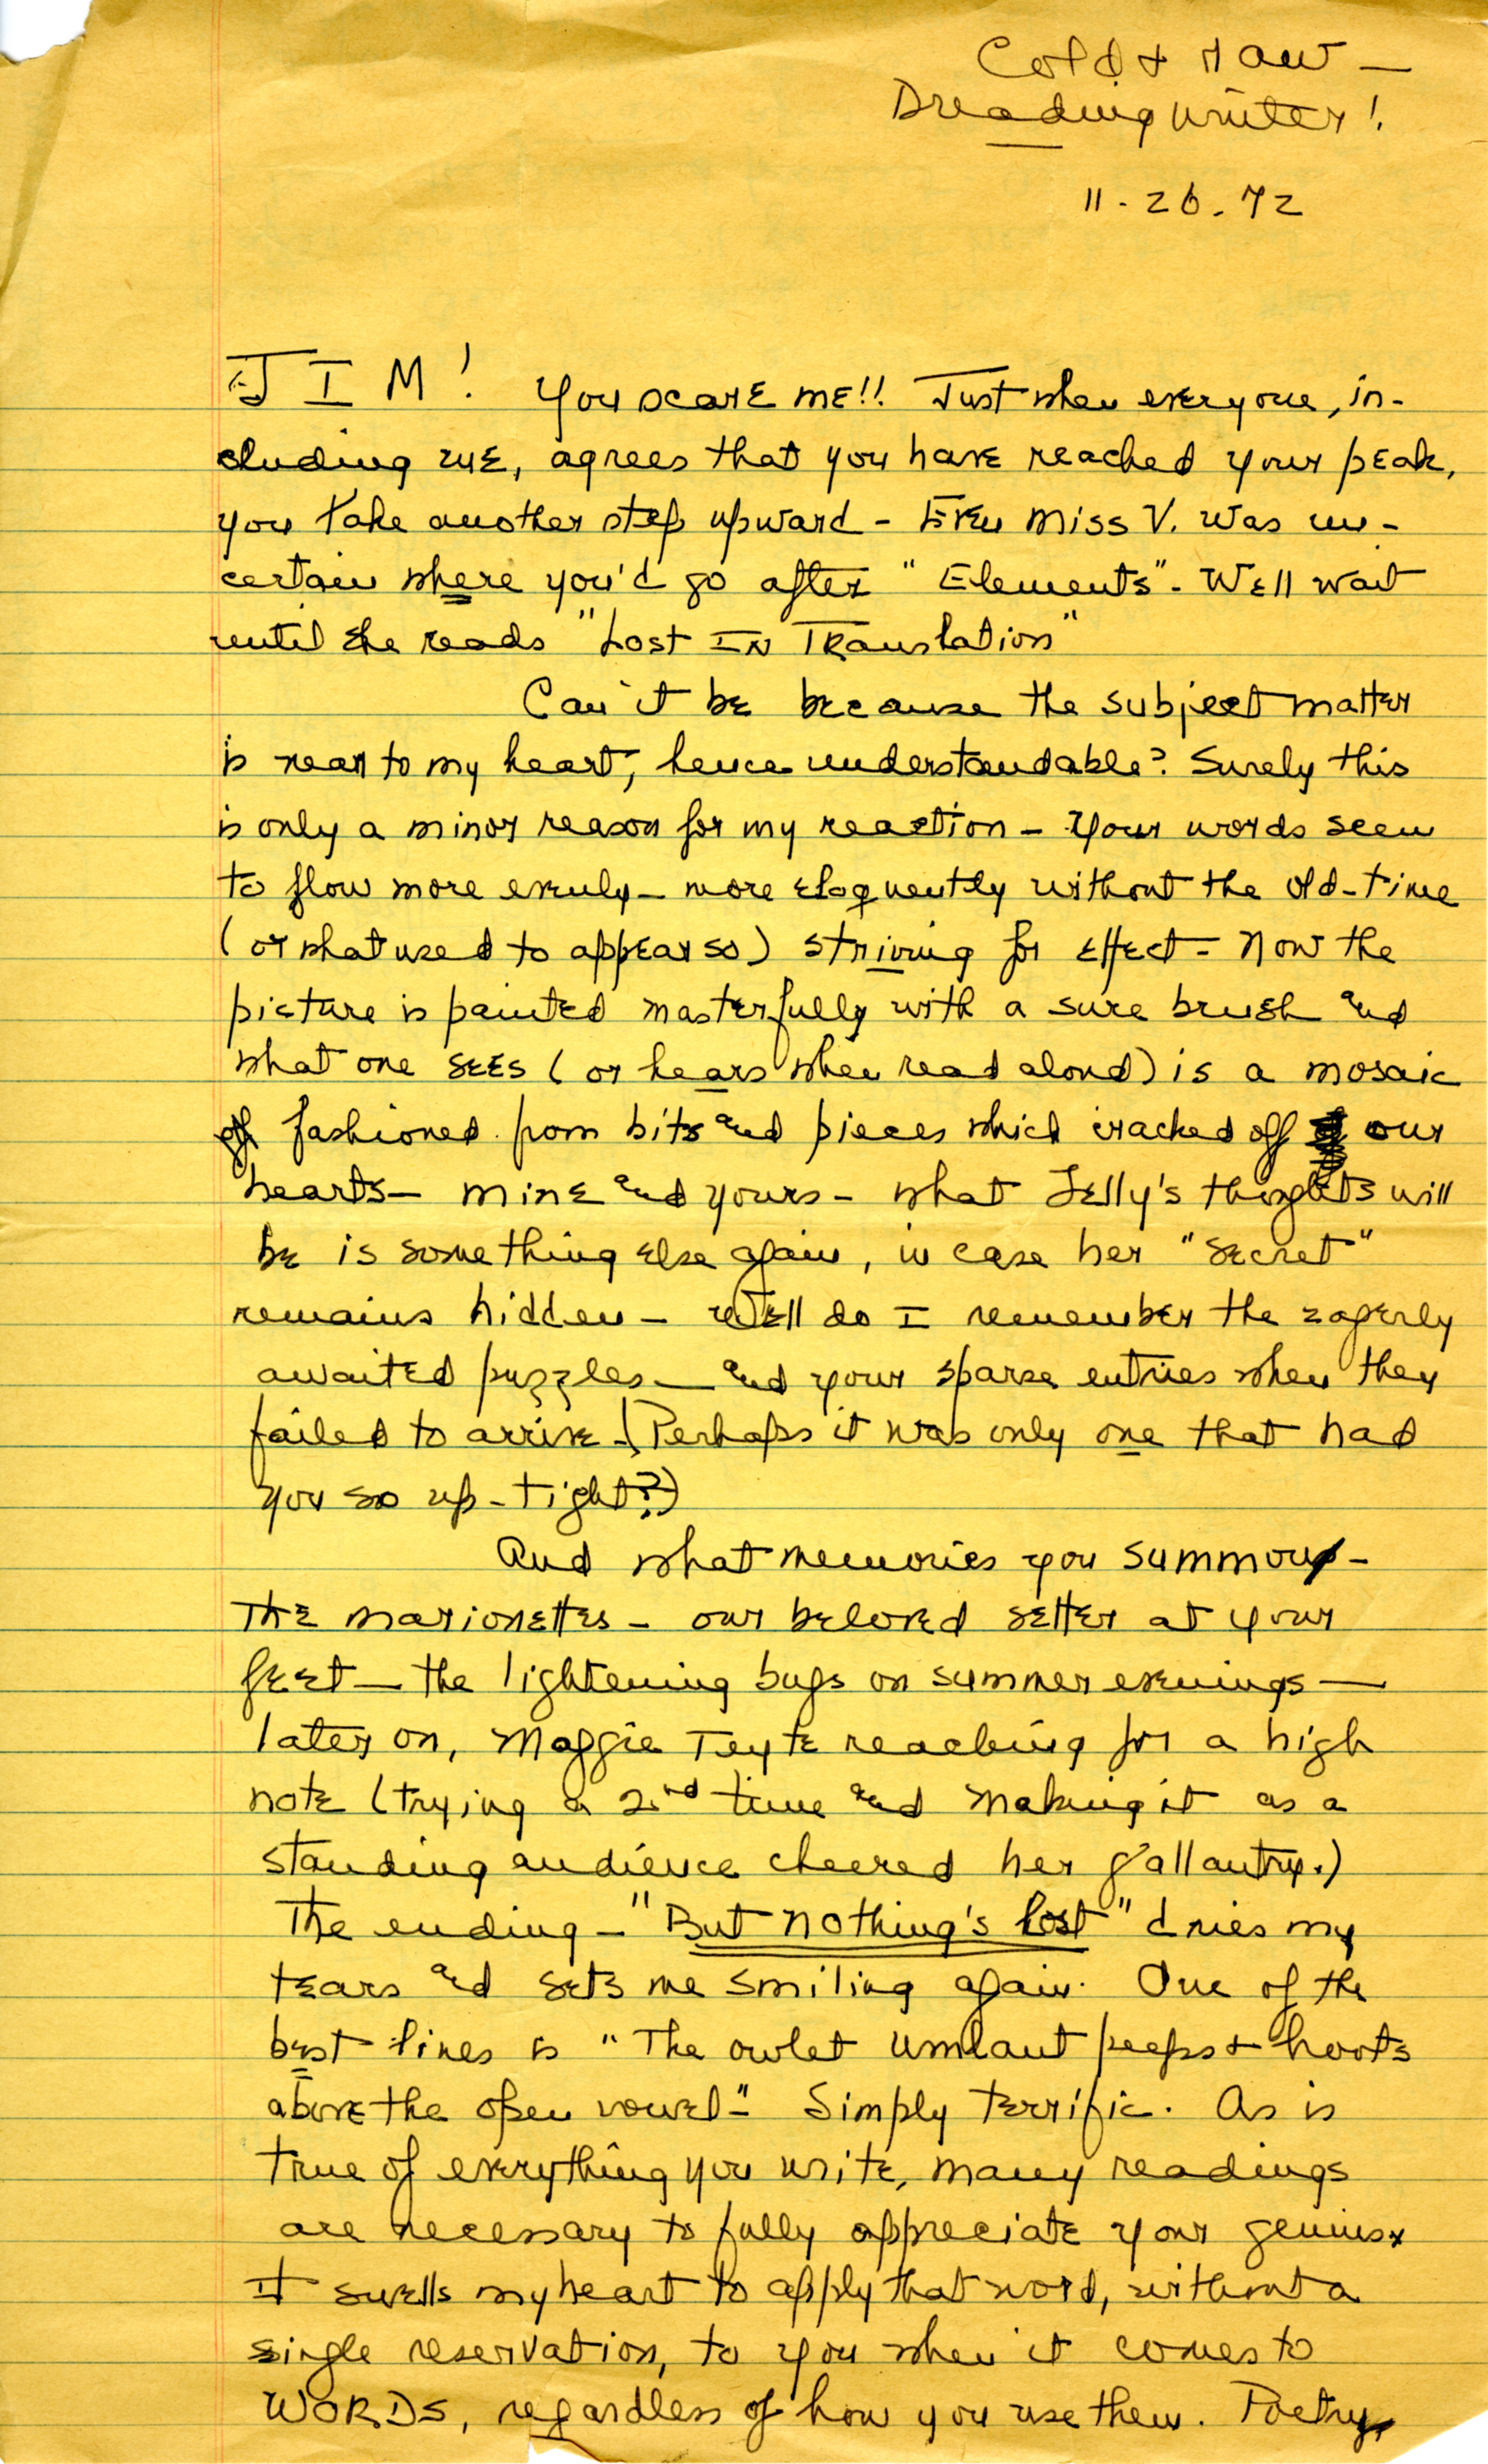 Cold & raw —
Dreading winter!
11-26-72
JIM! You scare me!! Just when everyone, in-
cluding me, agrees that you have reached your peak,
you take another step upward - Even Miss V. was un-
certain where you'd go after "Elements". Well wait
until she reads "Lost In Translation"
Can it be because the subject matter
is near to my heart, hence understandable? Surely this
is only a minor reason for my reaction - Your words seem
to flow more evenly - more eloquently without the old-time
(or what used to appear so) striving for effect - Now the
picture is painted masterfully with a sure brush and
what one sees (or hears when read aloud) is a mosaic
fashioned from bits and pieces which cracked off our
hearts - mine and yours - what Zelly's thoughts will
be is something else again, in case her "secret"
remains hidden - Well do I remember the eagerly
awaited puzzles - and your sparse entries when they
failed to arrive. (Perhaps it was only one that had
you so up-tight?)
And what memories you summon -
The marionettes - our beloved setter at your
feet - the lightening bugs on summer evenings —
later on, Maggie Teyte reaching for a high
note (trying a 2nd time and making it as a
standing audience cheered her gallantry.)
The ending - "But nothing's lost" dries my
tears and sets me smiling again. One of the
best lines is "The owlet umlaut peeps & hoots
above the open vowel-" Simply terrific. As is
true of everything you write, many readings
are necessary to fully appreciate your genius.
It swells my heart to apply that word, without a
single reservation, to you when it comes to
WORDS, regardless of how you use them. Poetry,